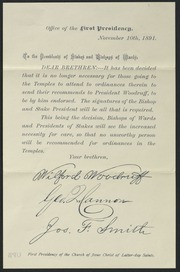 Office of the First Presidency,
November 10th, 1891.
To the Presidents of Stakes and Bishops of Wards:
DEAR BRETHREN:—It has been decided
that it is no longer necessary for those going to the
Temples to attend to ordinances therein to
send their recommends to President Woodruff, to
be by him endorsed. The signatures of the Bishop
and Stake President will be all that is required.
This being the decision, Bishops of Wards
and Presidents of Stakes will see the increased
necessity for care, so that no unworthy person
will be recommended for ordinances in the
Temples.
Your brethren,
Wilford Woodruff
Geo. Q. Cannon
Jos. F. Smith
First Presidency of the Church of Jesus Christ of Latter-day Saints.